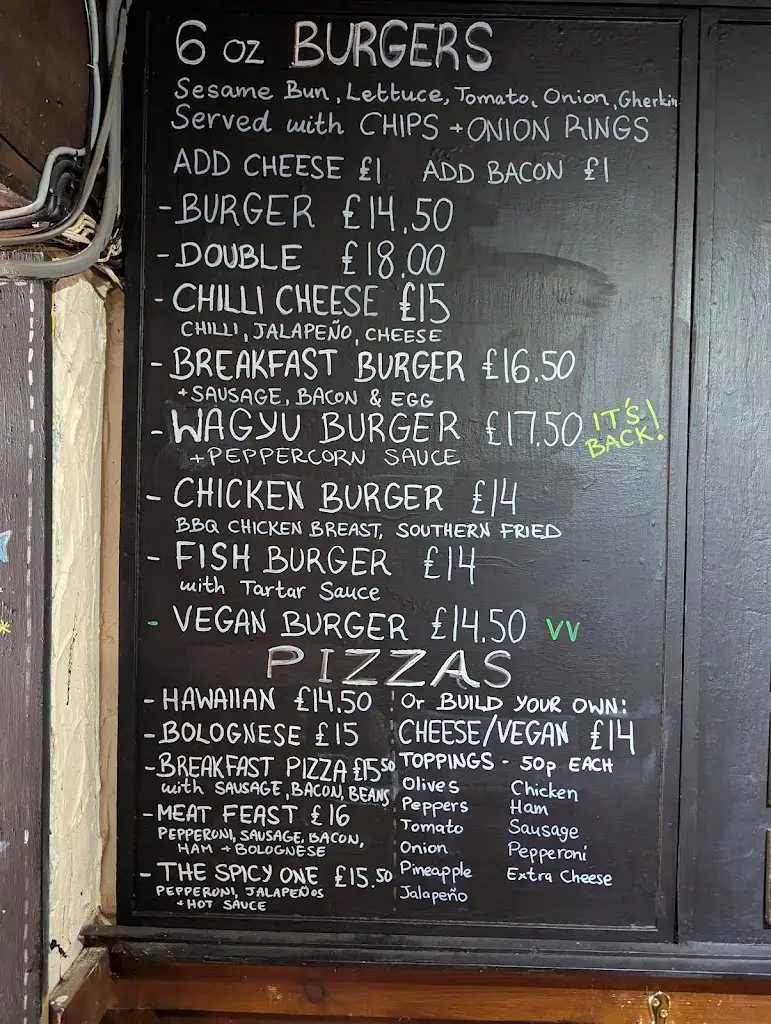 6 oz BURGERS
Sesame Bun, Lettuce, Tomato, Onion, Gherkin
Served with CHIPS + ONION RINGS
ADD CHEESE £1 ADD BACON £1
- BURGER £14.50
- DOUBLE £18.00
- CHILLI CHEESE £15
CHILLI, JALAPEÑO, CHEESE
- BREAKFAST BURGER £16.50
+ SAUSAGE, BACON & EGG
- WAGYU BURGER £17.50 IT'S BACK!
+ PEPPERCORN SAUCE
- CHICKEN BURGER £14
BBQ CHICKEN BREAST, SOUTHERN FRIED
- FISH BURGER £14
with Tartar Sauce
- VEGAN BURGER £14.50 VV
PIZZAS
- HAWAIIAN £14.50
- BOLOGNESE £15
- BREAKFAST PIZZA £15.50
with SAUSAGE, BACON, BEANS
- MEAT FEAST £16
PEPPERONI, SAUSAGE, BACON,
HAM + BOLOGNESE
- THE SPICY ONE £15.50
PEPPERONI, JALAPEÑOS
+ HOT SAUCE
Or BUILD YOUR OWN:
CHEESE/VEGAN £14
TOPPINGS - 50p EACH
Olives Chicken
Peppers Ham
Tomato Sausage
Onion Pepperoni
Pineapple Extra Cheese
Jalapeño